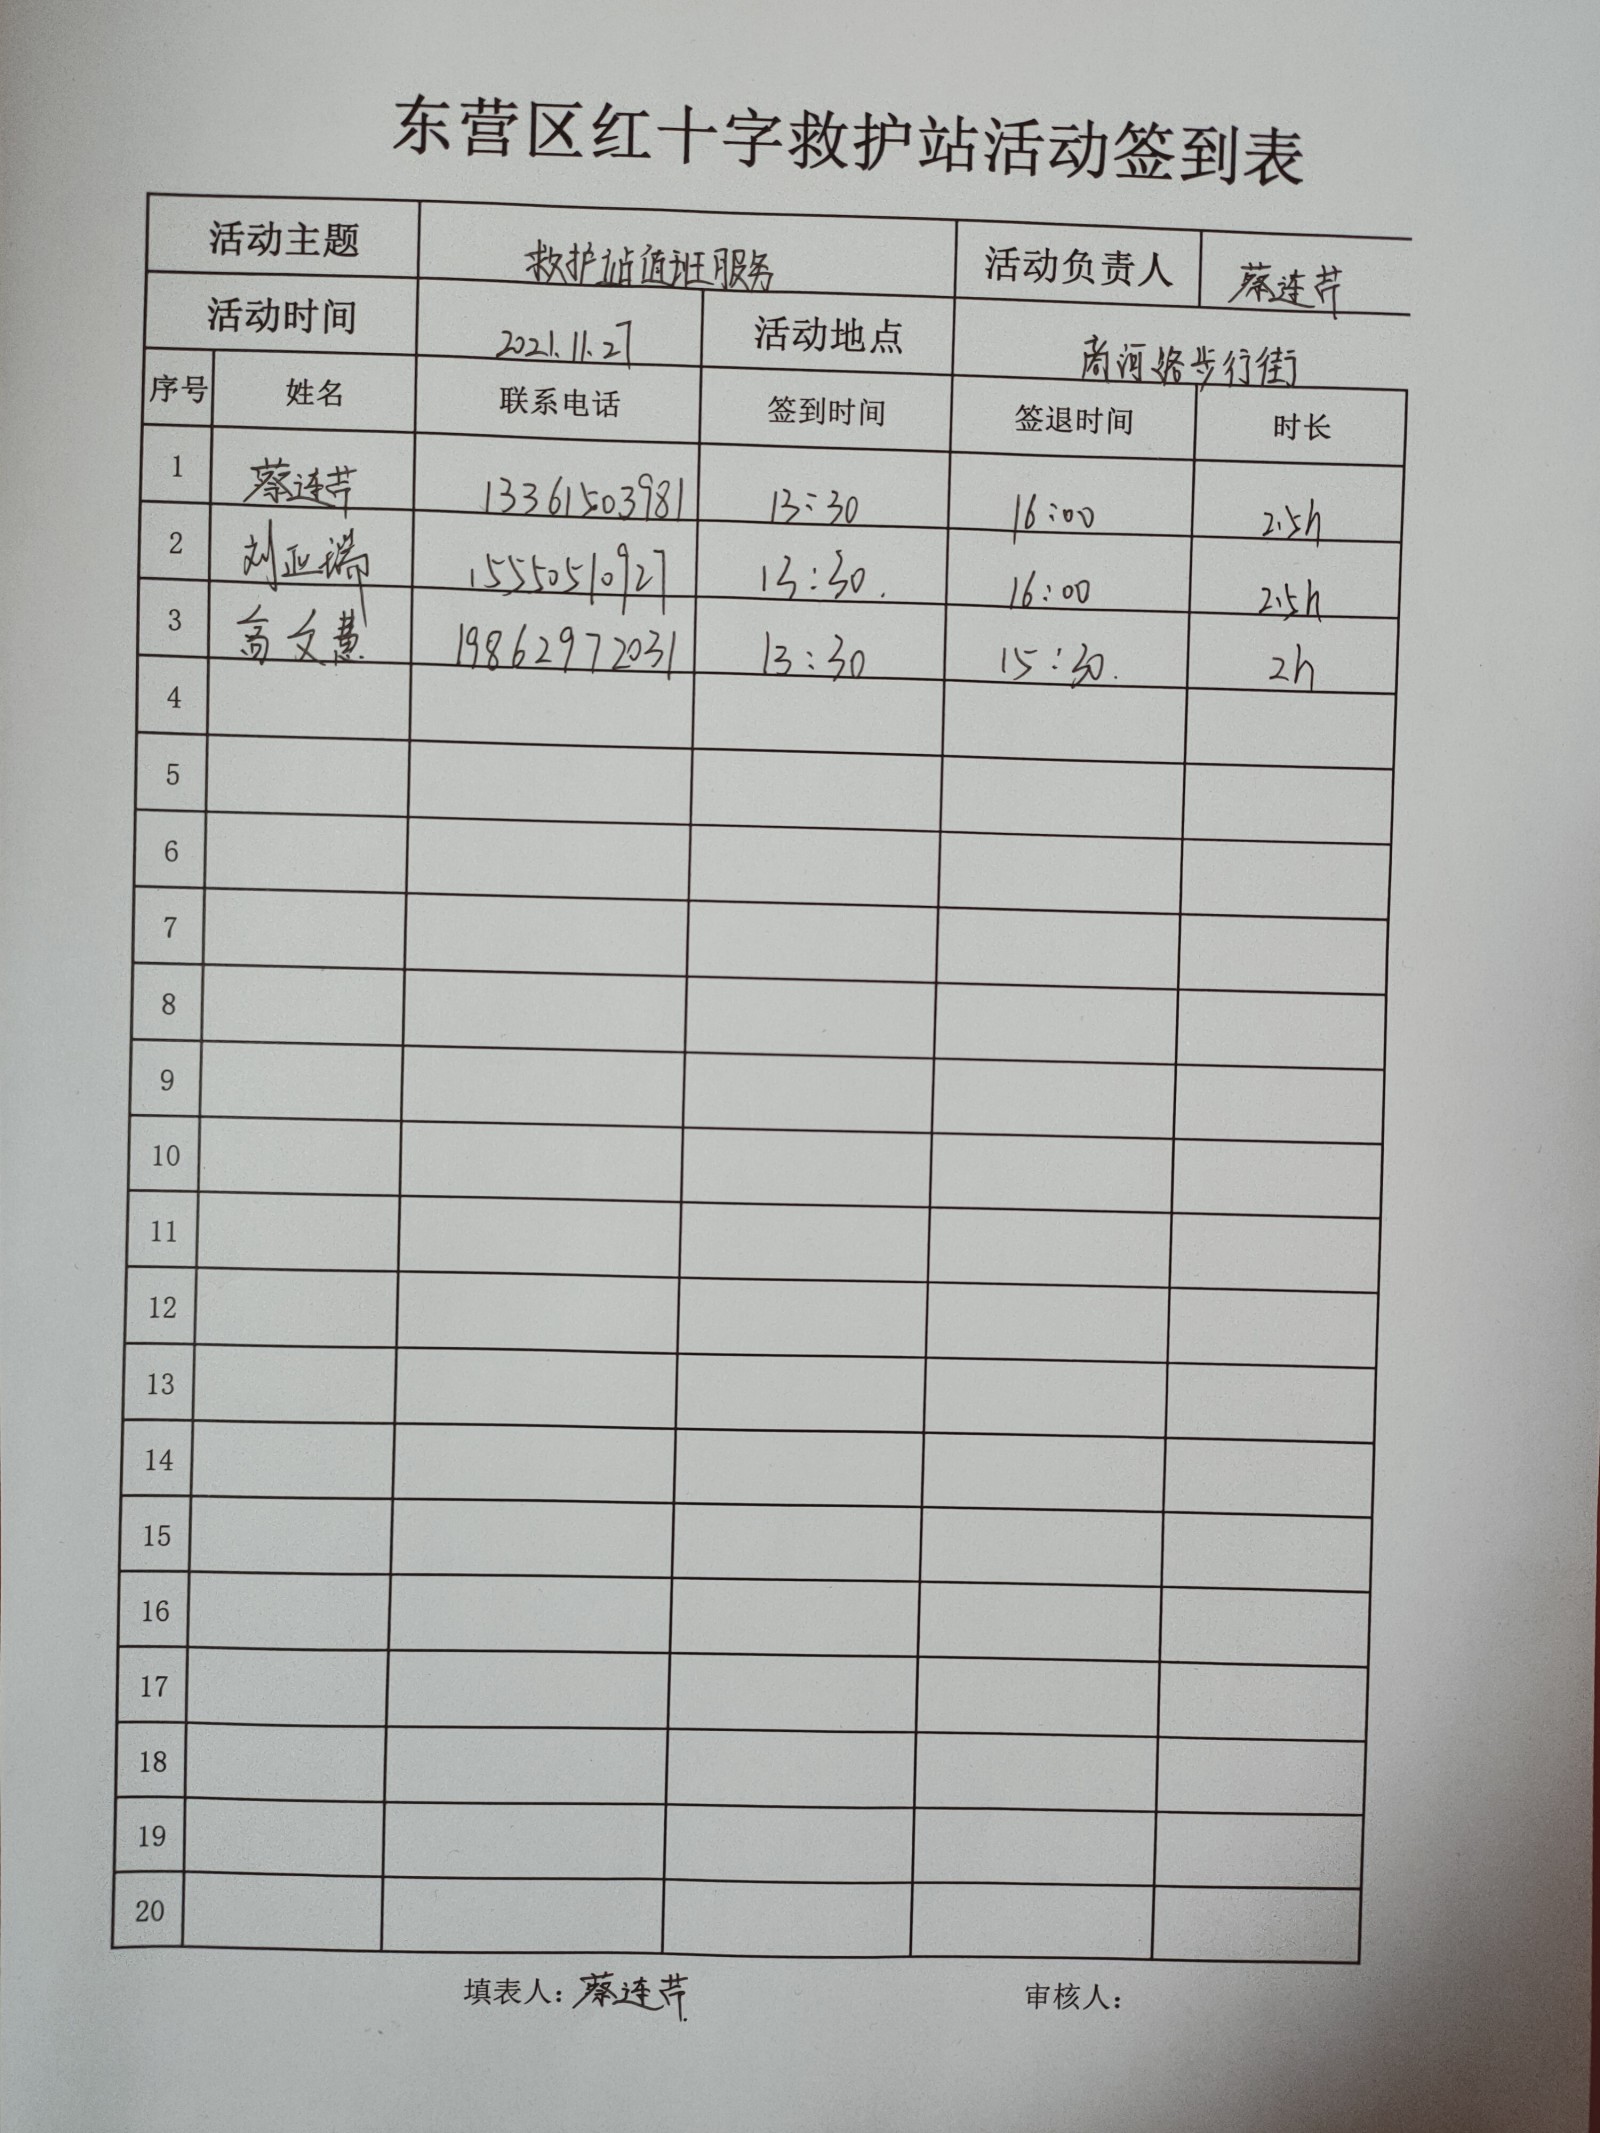 东营区红十字救护站活动签到表
活动主题 救护站值班服务 活动负责人 蔡连芹
活动时间 2021.11.27 活动地点 商河路步行街
序号 姓名 联系电话 签到时间 签退时间 时长
1 蔡连芹 13361503981 13:30 16:00 2.5h
2 刘亚瑞 15550510927 13:30. 16:00 2.5h
3 高文慧 19862972031 13:30 15:30. 2h
4
5
6
7
8
9
10
11
12
13
14
15
16
17
18
19
20
填表人：蔡连芹 审核人：